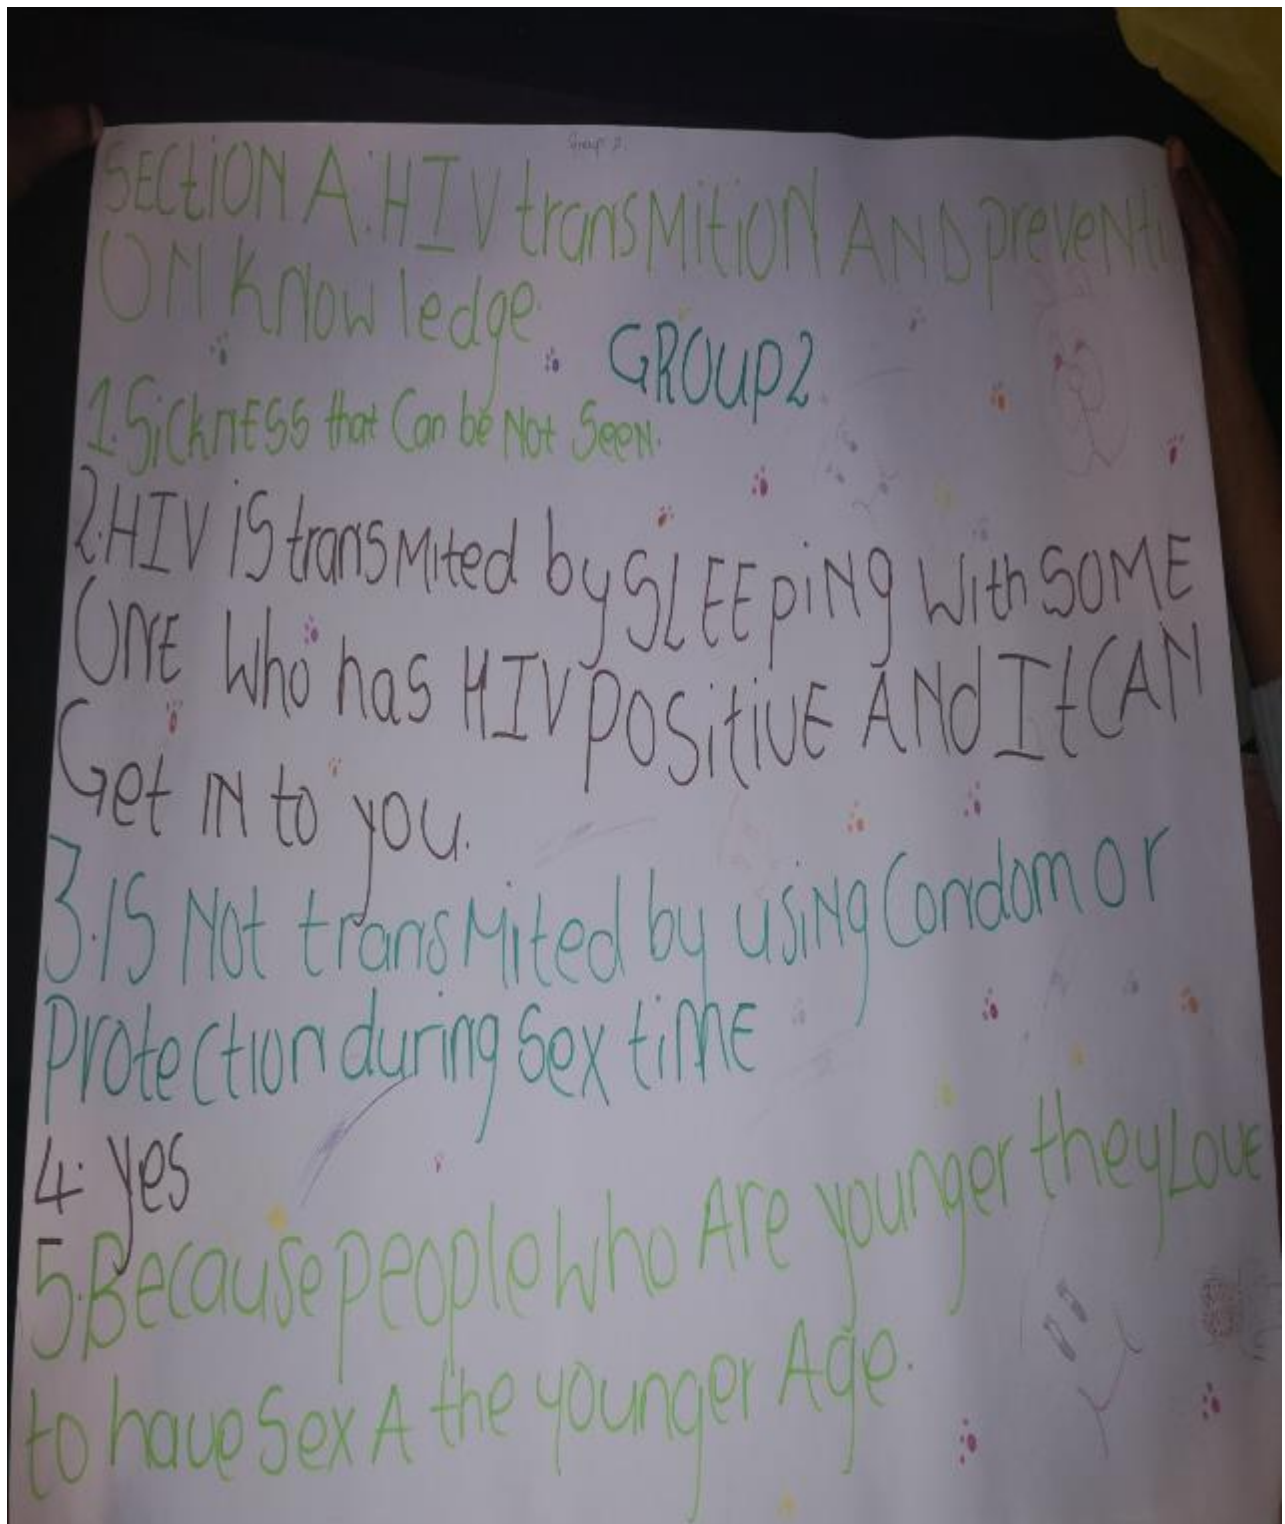 Group 2.
SECtiON A. HIV transMitiON AND preveNti
ON Knowledge.
GROUp2
1. SickNESS that Can be Not SeeN.
2. HIV iS transMited by SLEEpiNg With SOME
ONE Who has HIV POSitiVE ANd It CAN
Get IN to you.
3. IS Not transMited by usiNg Condom or
Protection during Sex time
4. yes
5. Because people who Are younger they LovE
to have Sex A the younger Age.